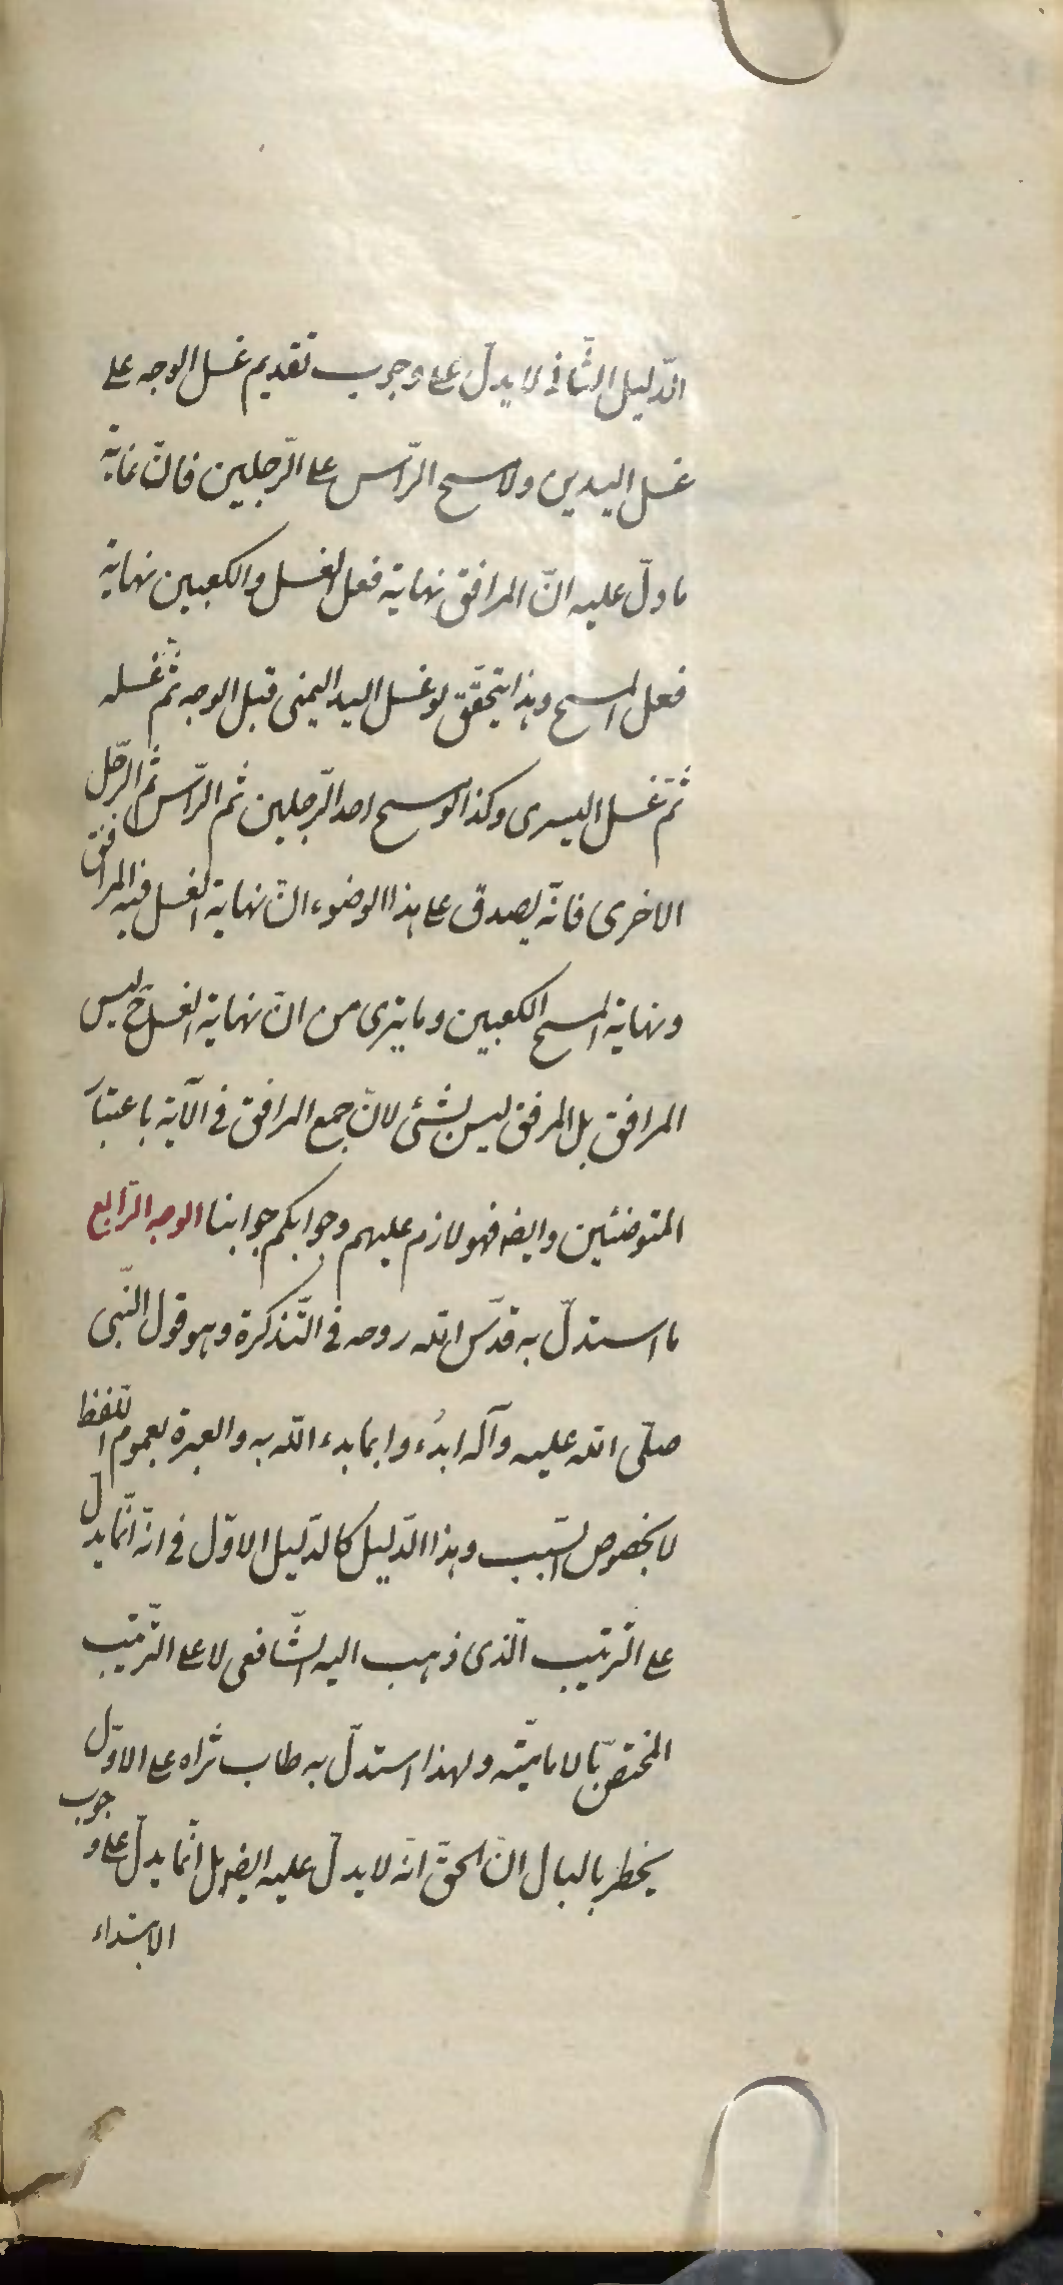 الدّليل الثّانى لا يدلّ على وجوب تقديم غسل الوجه على
غسل اليدين ولا مسح الرّاس على الرّجلين فانّ غاية
ما دلّ عليه انّ المرافق نهاية فعل الغسل والكعبين نهاية
فعل المسح وهذا يتحقّق لو غسل اليد اليمنى قبل الوجه ثمّ غسله
ثمّ غسل اليسرى وكذا لو مسح احد الرّجلين ثم الرّاس ثم الرّجل
الاخرى فانّه يصدق على هذا الوضوء انّ نهاية الغسل فيه المرافق
ونهاية المسح الكعبين وما يترى من انّ نهاية الغسل ح ليس
المرافق بل المرفق ليس بشئ لانّ جمع المرافق فى الآية باعتبار
المتوضئين وايضه فهو لازم عليهم وجوابكم جوابنا الوجه الرّابع
ما استدلّ به قدّس الله روحه فى التّذكرة وهو قول النّبى
صلّى الله عليه وآله ابدُءوا بما بدء الله به والعبرة بعموم اللفظ
لا بخصوص السّبب وهذا الدّليل كالدّليل الاوّل فى انّه انّما يدل
على الترتيب الّذى ذهب اليه الشّافعى لا على التّرتيب
المختصّ بالاماميّة ولهذا استدلّ به طاب ثراه على الاوّل
يخطر بالبال انّ الحقّ انّه لا يدلّ عليه ايضه بل انّما يدلّ على وجوب
الابتداء